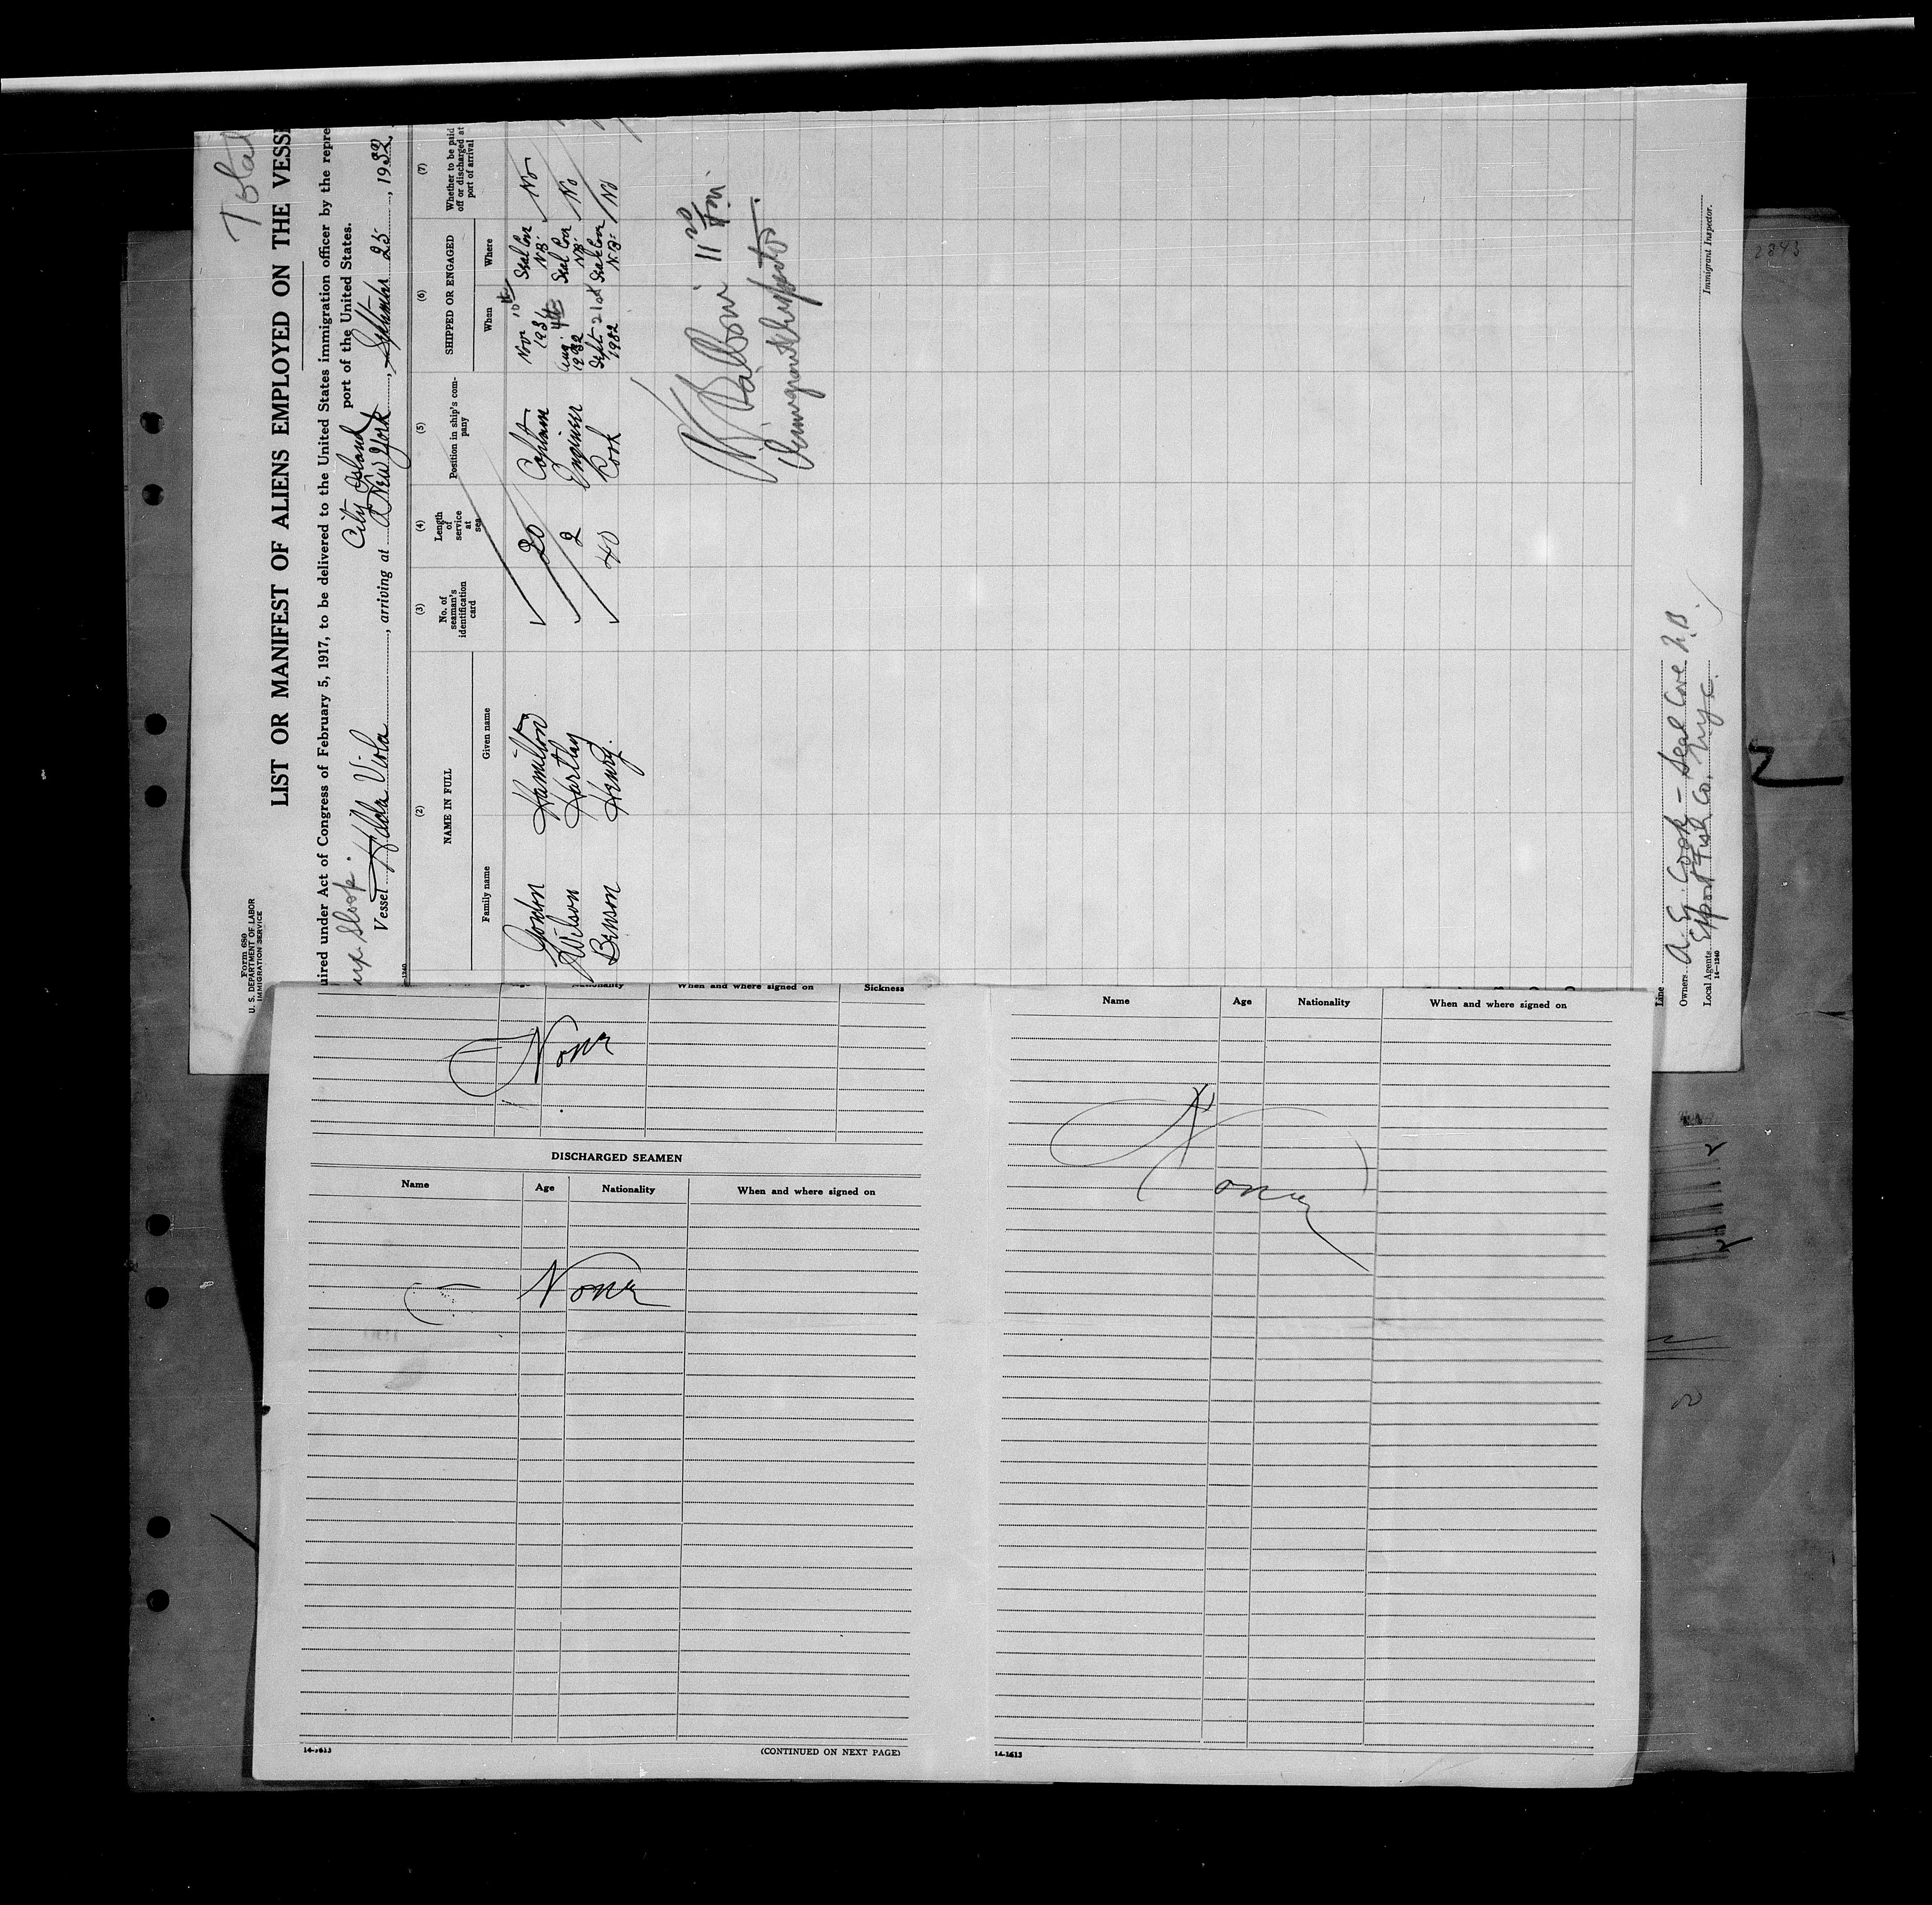 Total
Form 680
U. S. DEPARTMENT OF LABOR
IMMIGRATION SERVICE
LIST OR MANIFEST OF ALIENS EMPLOYED ON THE VESSE
uired under Act of Congress of February 5, 1917, to be delivered to the United States immigration officer by the repre
port of the United States.
City Island
Sloop
Vessel Hilda Viola, arriving at New York, September 25, 1932,
(2) (3) (4) (5) (6) (7)
NAME IN FULL
Family name Given name
No. of seaman's identification card
Length of service at sea
Position in ship's company
SHIPPED OR ENGAGED
When Where
Whether to be paid off or discharged at port of arrival
Gordon Hamilton 20 Captain Nov 10th 1931 Seal Cove N.B. No
Wilson Hartley 2 Engineer Aug. 4th 1932 Seal Cove N.B. No
Benson Henry. 40 Cook Sept 21st 1932 Seal Cove N.B. No
Immigrant Inspector.
Immigrant Inspector.
Line
Owners A. E. Cook - Seal Cove N.B.
Local Agents Export Fish Co. NYC.
14-1240
2843
Age Nationality When and where signed on Sickness
None
DISCHARGED SEAMEN
Name Age Nationality When and where signed on
None
14-1613
(CONTINUED ON NEXT PAGE)
Name Age Nationality When and where signed on
None
14-1613